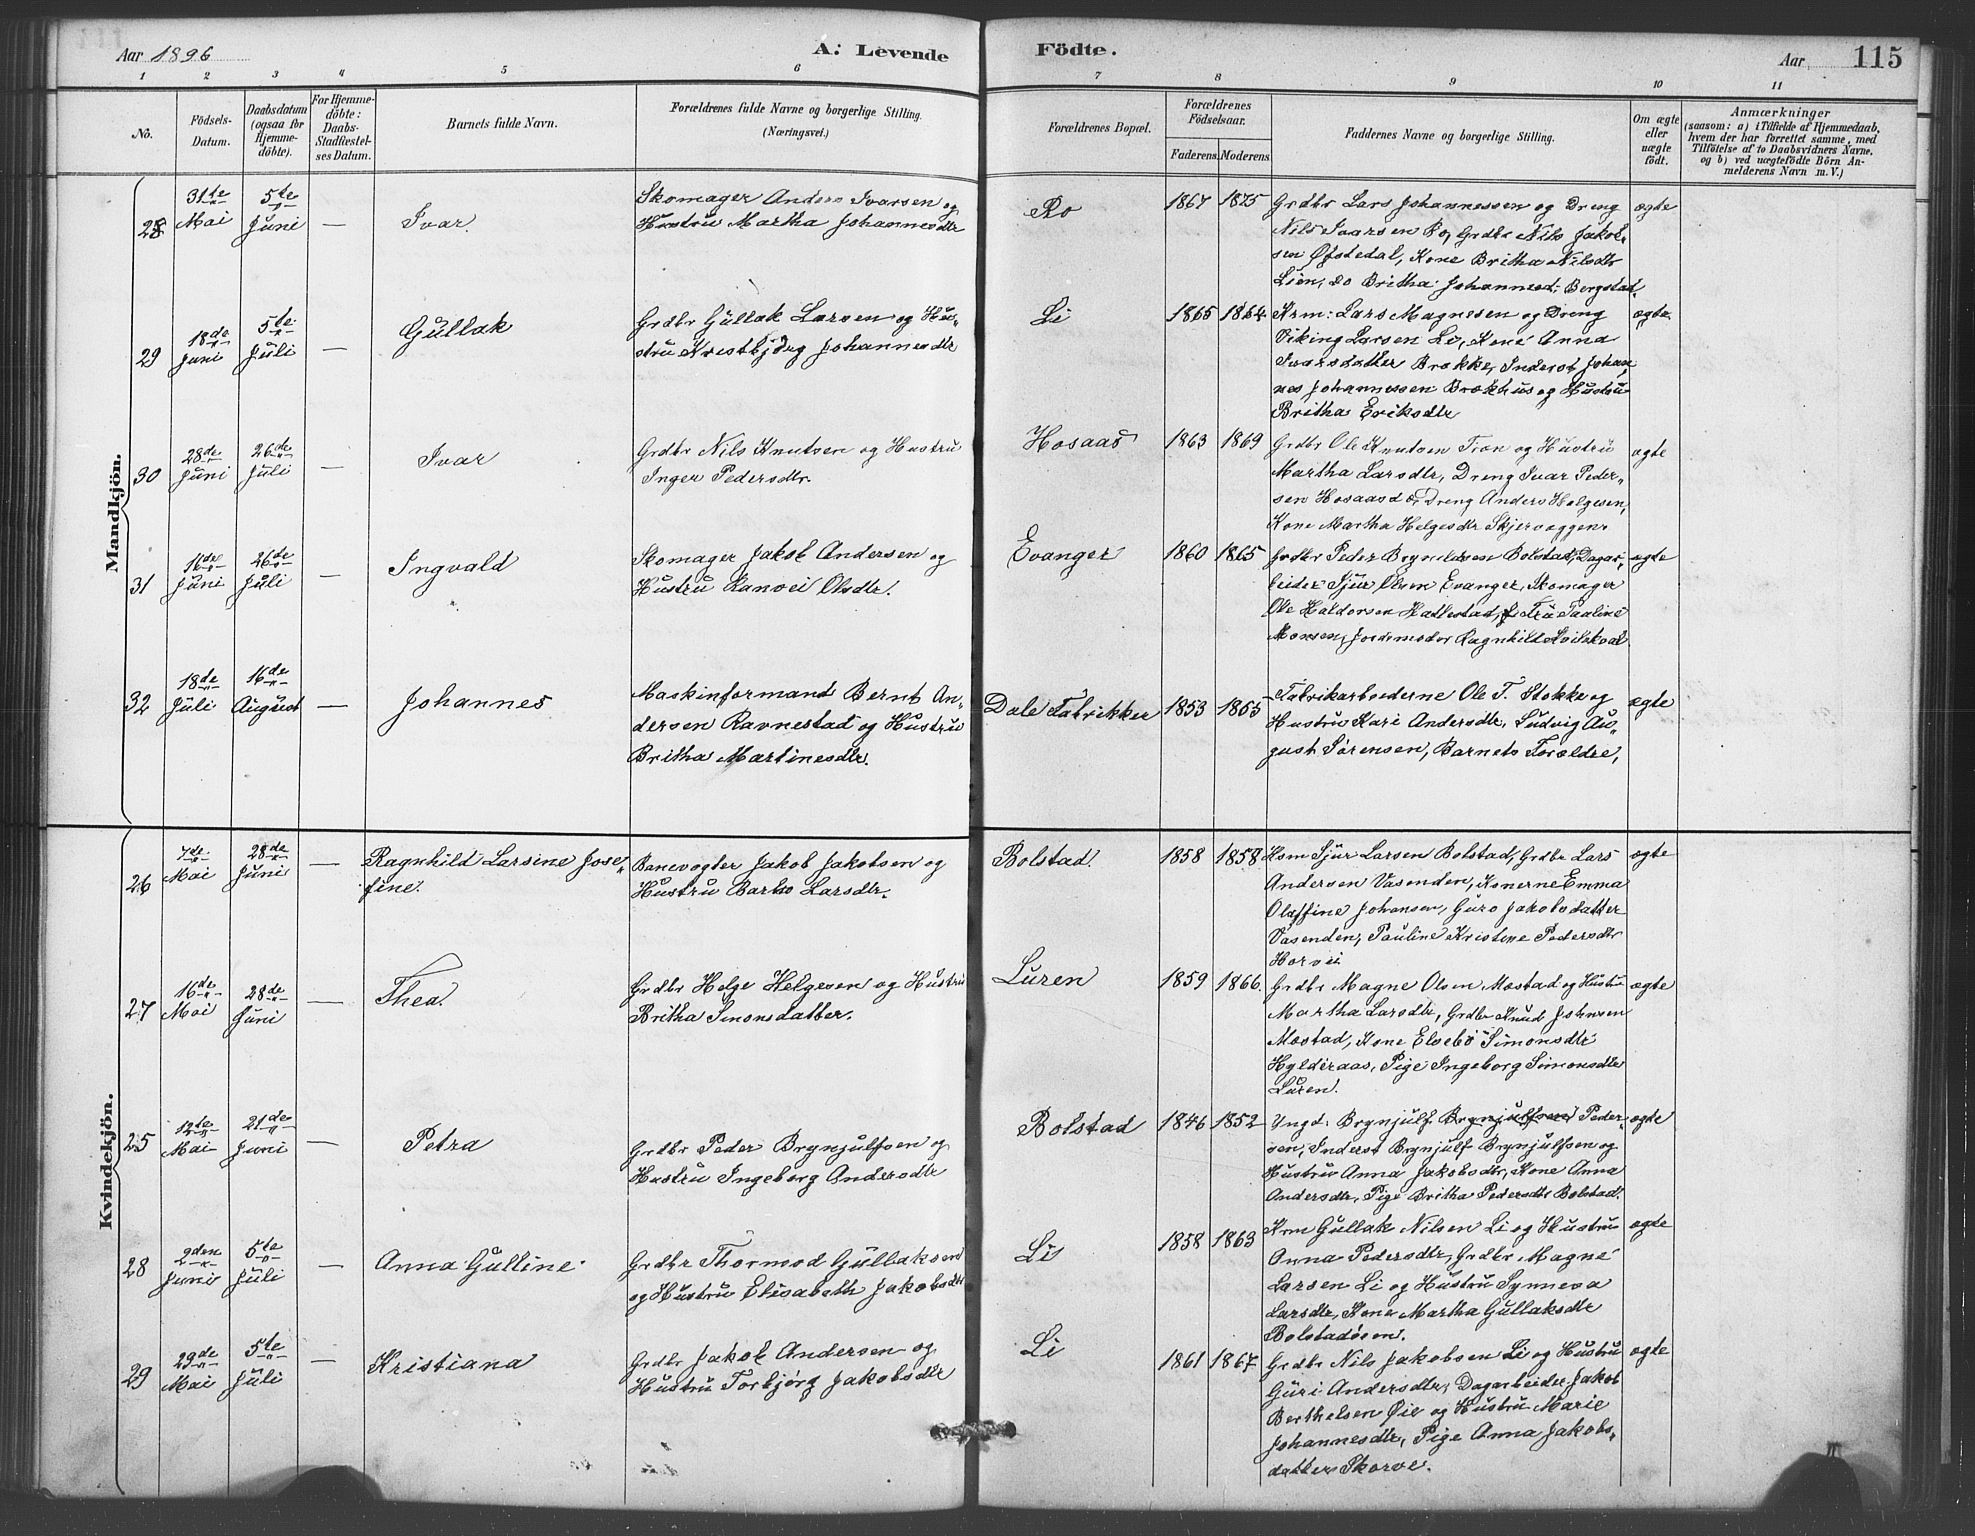 Aar 1896
A. Levende
Födte.
Aar
115
1 2 3 4 5 6 7 8 9 10 11
No.
Födsels-
Datum.
Daabsdatum
(ogsaa for
Hjemme-
döbte).
For Hjemme-
döbte:
Daabs-
Stadfæstel-
ses Datum.
Barnets fulde Navn.
Forældrenes fulde Navne og borgerlige Stilling.
(Næringsvei.)
Forældrenes Bopæl.
Forældrenes
Födselsaar.
Faderens. Moderens.
Faddernes Navne og borgerlige Stilling.
Om ægte
eller
uægte
födt.
Anmærkninger
(saasom: a) i Tilfælde af Hjemmedaab,
hvem der har forrettet samme, med
Tilföielse af to Daabsvidners Navne,
og b) ved uægtefödte Börn An-
melderens Navn m. V.)
Mandkjön.
28
31te
Mai
5te
Juni
—
Ivar.
Skomager Anders Ivarsen og
Hustru Martha Johannesdtr
Ro
1867 1875
Grdbr Lars Johannessen og Dreng
Nils Ivarsen Ro, Grdbr Nils Jakob-
sen Øfstedal, Kone Britha Nilsdtr
Lien, do Britha Johannesd: Bergstad.
ægte
29
18de
Juni
5te
Juli
—
Gullak
Grdbr Gullak Larsen og Hus-
stru Kristbjørg Johannesdtr
Li
1865 1864
Krm: Lars Magnesen og Dreng
Viking Larsen Li, Kone Anna
Ivarsdatter Brække, Inderst Johan
nes Johannessen Brækhus og Hustru
Britha Eriksdtr
ægte
30
28de
Juni
26de
Juli
—
Ivar
Grdbr Nils Knutsen og Hustru
Inger Pedersdtr.
Hosaas
1863 1869
Grdbr Ole Knutsen Træn og Hustru
Martha Larsdtr, Dreng Ivar Peder-
sen Hosaas Dreng Anders Helgesen,
Kone Martha Helgesdtr Skjervæggen.
ægte
31
16de
Juni
26de
Juli
—
Ingvald
Skomager Jakob Andersen og
Hustru Ranvei Olsdtr.
Evanger
1860 1865
Grdbr Peder Brynildsen Bolstad, Dagar-
beider Sjur Olsen Evanger, Skomager
Ole Haldorsen Hallestad, Fru Pauline
Monsen, Jordemoder Ragnhild Kvilekval
ægte
32
18de
Juli
16de
August
—
Johannes
Maskinformand Bernt An-
dersen Ravnestad og Hustru
Britha Martinesdtr.
Dale Fabrikker
1853 1865
Fabrikarbeiderne Ole T. Stokke og
Hustru Kari Andersdtr, Ludvig Au-
gust Sørensen, Barnets Forældre,
ægte
Kvindekjön.
26
7de
Mai
28de
Juni
—
Ragnhild Larsine Jose-
fine.
Banevogter Jakob Jakobsen og
Hustru Barbo Larsdtr.
Bolstad.
1858 1858
Hsm Sjur Larsen Bolstad, Grdbr Lars
Andersen Vasenden, Konerne Emma
Olaffine Johansen, Guro Jakobsdatter
Vasenden, Pauline Kristine Pedersdtr
Horvei
ægte
27
16de
Mai
28de
Juni
—
Thea.
Grdbr Helge Helgesen og Hustru
Britha Simonsdatter.
Luren
1859 1866.
Grdbr Magne Olsen Mestad og Hustru
Martha Larsdtr, Grdbr Knud Johnsen
Mestad, Kone Elsebø Simonsdtr
Hylderaas, Pige Ingeborg Simonsdtr
Luren.
ægte
25
12te
Mai
21de
Juni
—
Petra
Grdbr Peder Brynjulfsen og
Hustru Ingeborg Andersdtr
Bolstad
1846 1852
Yngd. Brynjulf Brynjulfsen Peder-
sen, Inderst Brynjulf Brynjulfsen og
Hustru Anna Jakobsdtr, Kone Anna
Andersdtr, Pige Britha Pedersdtr Bolstad.
ægte
28
2den
Juni
5te
Juli
—
Anna Gulline
Grdbr Thormod Gullaksen
og Hustru Elisabeth Jakobsdtr
Li
1858 1863
Krm Gullak Nilsen Li og Hustru
Anna Pedersdtr, Grdbr Magne
Larsen Li og Hustru Synneva
Larsdtr, Kone Martha Gullaksdtr
Bolstadøsen.
ægte
29
29de
Mai
5te
Juli
—
Kristiana
Grdbr Jakob Andersen og
Hustru Torbjørg Jakobsdtr
Li
1861 1867
Grdbr Nils Jakobsen Li og Hustru
Guri Andersdtr, Dagarbeider Jakob
Berthelsen Øie og Hustru Marie
Johannesdtr, Pige Anna Jakobs-
datter Skorve.
ægte